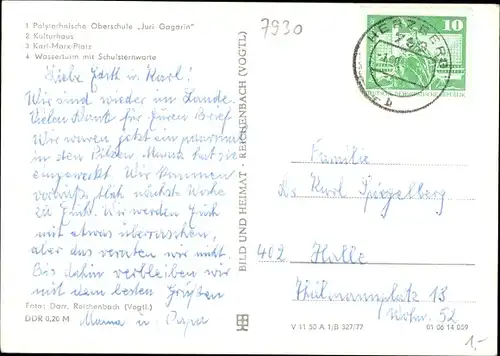 1 Polytechnische Oberschule „Juri Gagarin"
2 Kulturhaus
3 Karl-Marx-Platz
4 Wasserturm mit Schulsternwarte
7930
Liebe Edith u. Karl!
Wir sind wieder im Lande.
Vielen Dank für Euren Brief
Wir waren jetzt ein paarmal
in den Pilzen, Mama hat sie
eingeweckt. Wir kommen
vorauss. nächste Woche
zu Euch. Wir werden Euch
mit etwas überraschen,
aber das verraten wir nicht.
Bis dahin verbleiben wir
mit den besten Grüßen
Mama u. Papa
Foto: Darr, Reichenbach (Vogtl.)
DDR 0,20 M
BILD UND HEIMAT · REICHENBACH (VOGTL)
HERZBERG
10
Familie
Karl Spiegelberg
402 Halle
Thälmannplatz 13
Wohn. 52
V 11 50 A 1/B 327/77
01 06 14 059
1,-